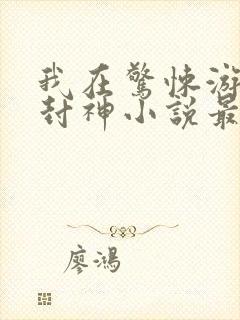 我在驚悚游
封神小說最
廖鴻